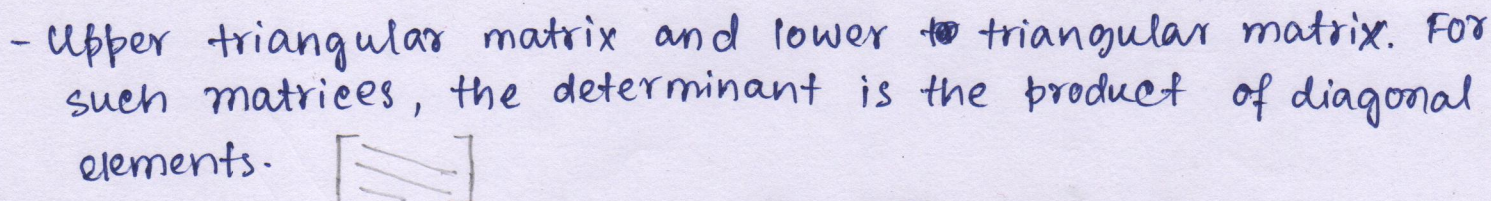 - Upper triangular matrix and lower triangular matrix. For
such matrices, the determinant is the product of diagonal
elements.